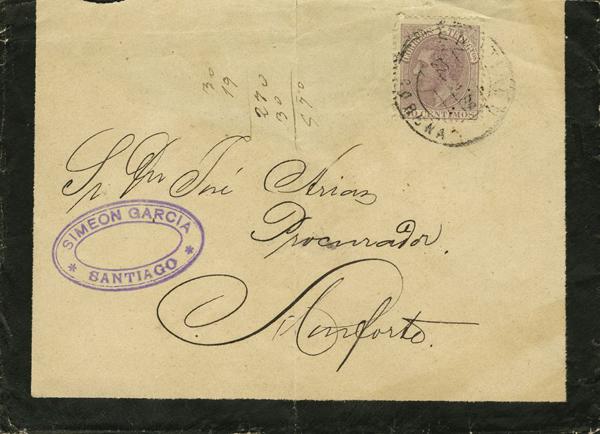 30
19
270
30
570
CORREOS Y TELEGS
CENTIMOS
Sr Dn José Arias
Procurador.
Monforte.
SIMEON GARCIA
SANTIAGO